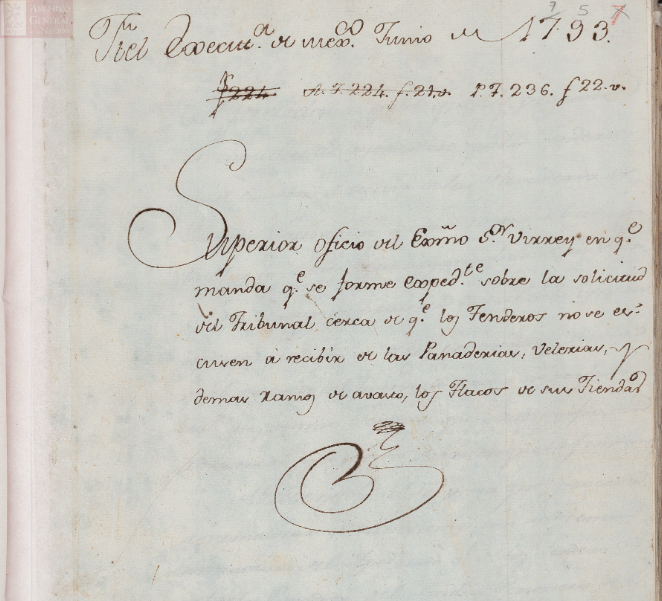 ARCHIVO
GENERAL
7 5 7
Fiel Execut.ª de Mex.co Junio de 1793.
f 224 A. 7. 224. f. 21. v. P. 7. 236. f 22. v.
Superior oficio del Exmo S.or Virrey en q.e
manda q.e se forme exped.te sobre la solicitud
del Tribunal cerca de q.e los Tenderos no se es-
cusen a recibir de las Panaderias, Velerias, y
demas ramos de avasto, los Tlacos de sus Tiendas